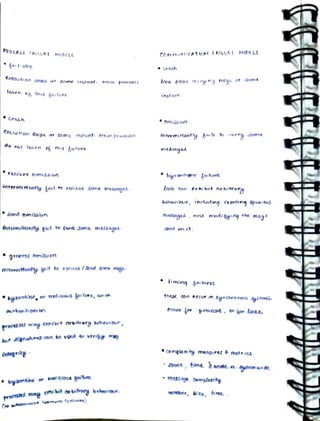 PROCESS FAILURE MODELS
• fail-stop
execution stops at some instant. other processes
learn of this failure
• crash
execution stops at some instant. other processes
do not learn of this failure
• receive omission
intermittently fail to receive some messages.
• send omission
intermittently fail to send some messages.
• general omission
intermittently fail to receive / send some msgs.
• byzantine, or malicious failure, with
authentication
processes may exhibit arbitrary behaviour,
but signatures can be used to verify msg
integrity.
• byzantine or malicious failure
processes may exhibit arbitrary behaviour.
COMMUNICATION FAILURE MODELS
• crash
link stops carrying msgs at some
instant
• omission
intermittently fails to carry some
messages
• byzantine failure
link can exhibit arbitrary
behaviour, including creating spurious
messages, and modifying the msgs
sent on it.
• timing failures
these can occur in synchronous systems
either for processes, or for links.
• complexity measures & metrics
- space, time
- message complexity
number, size, time.